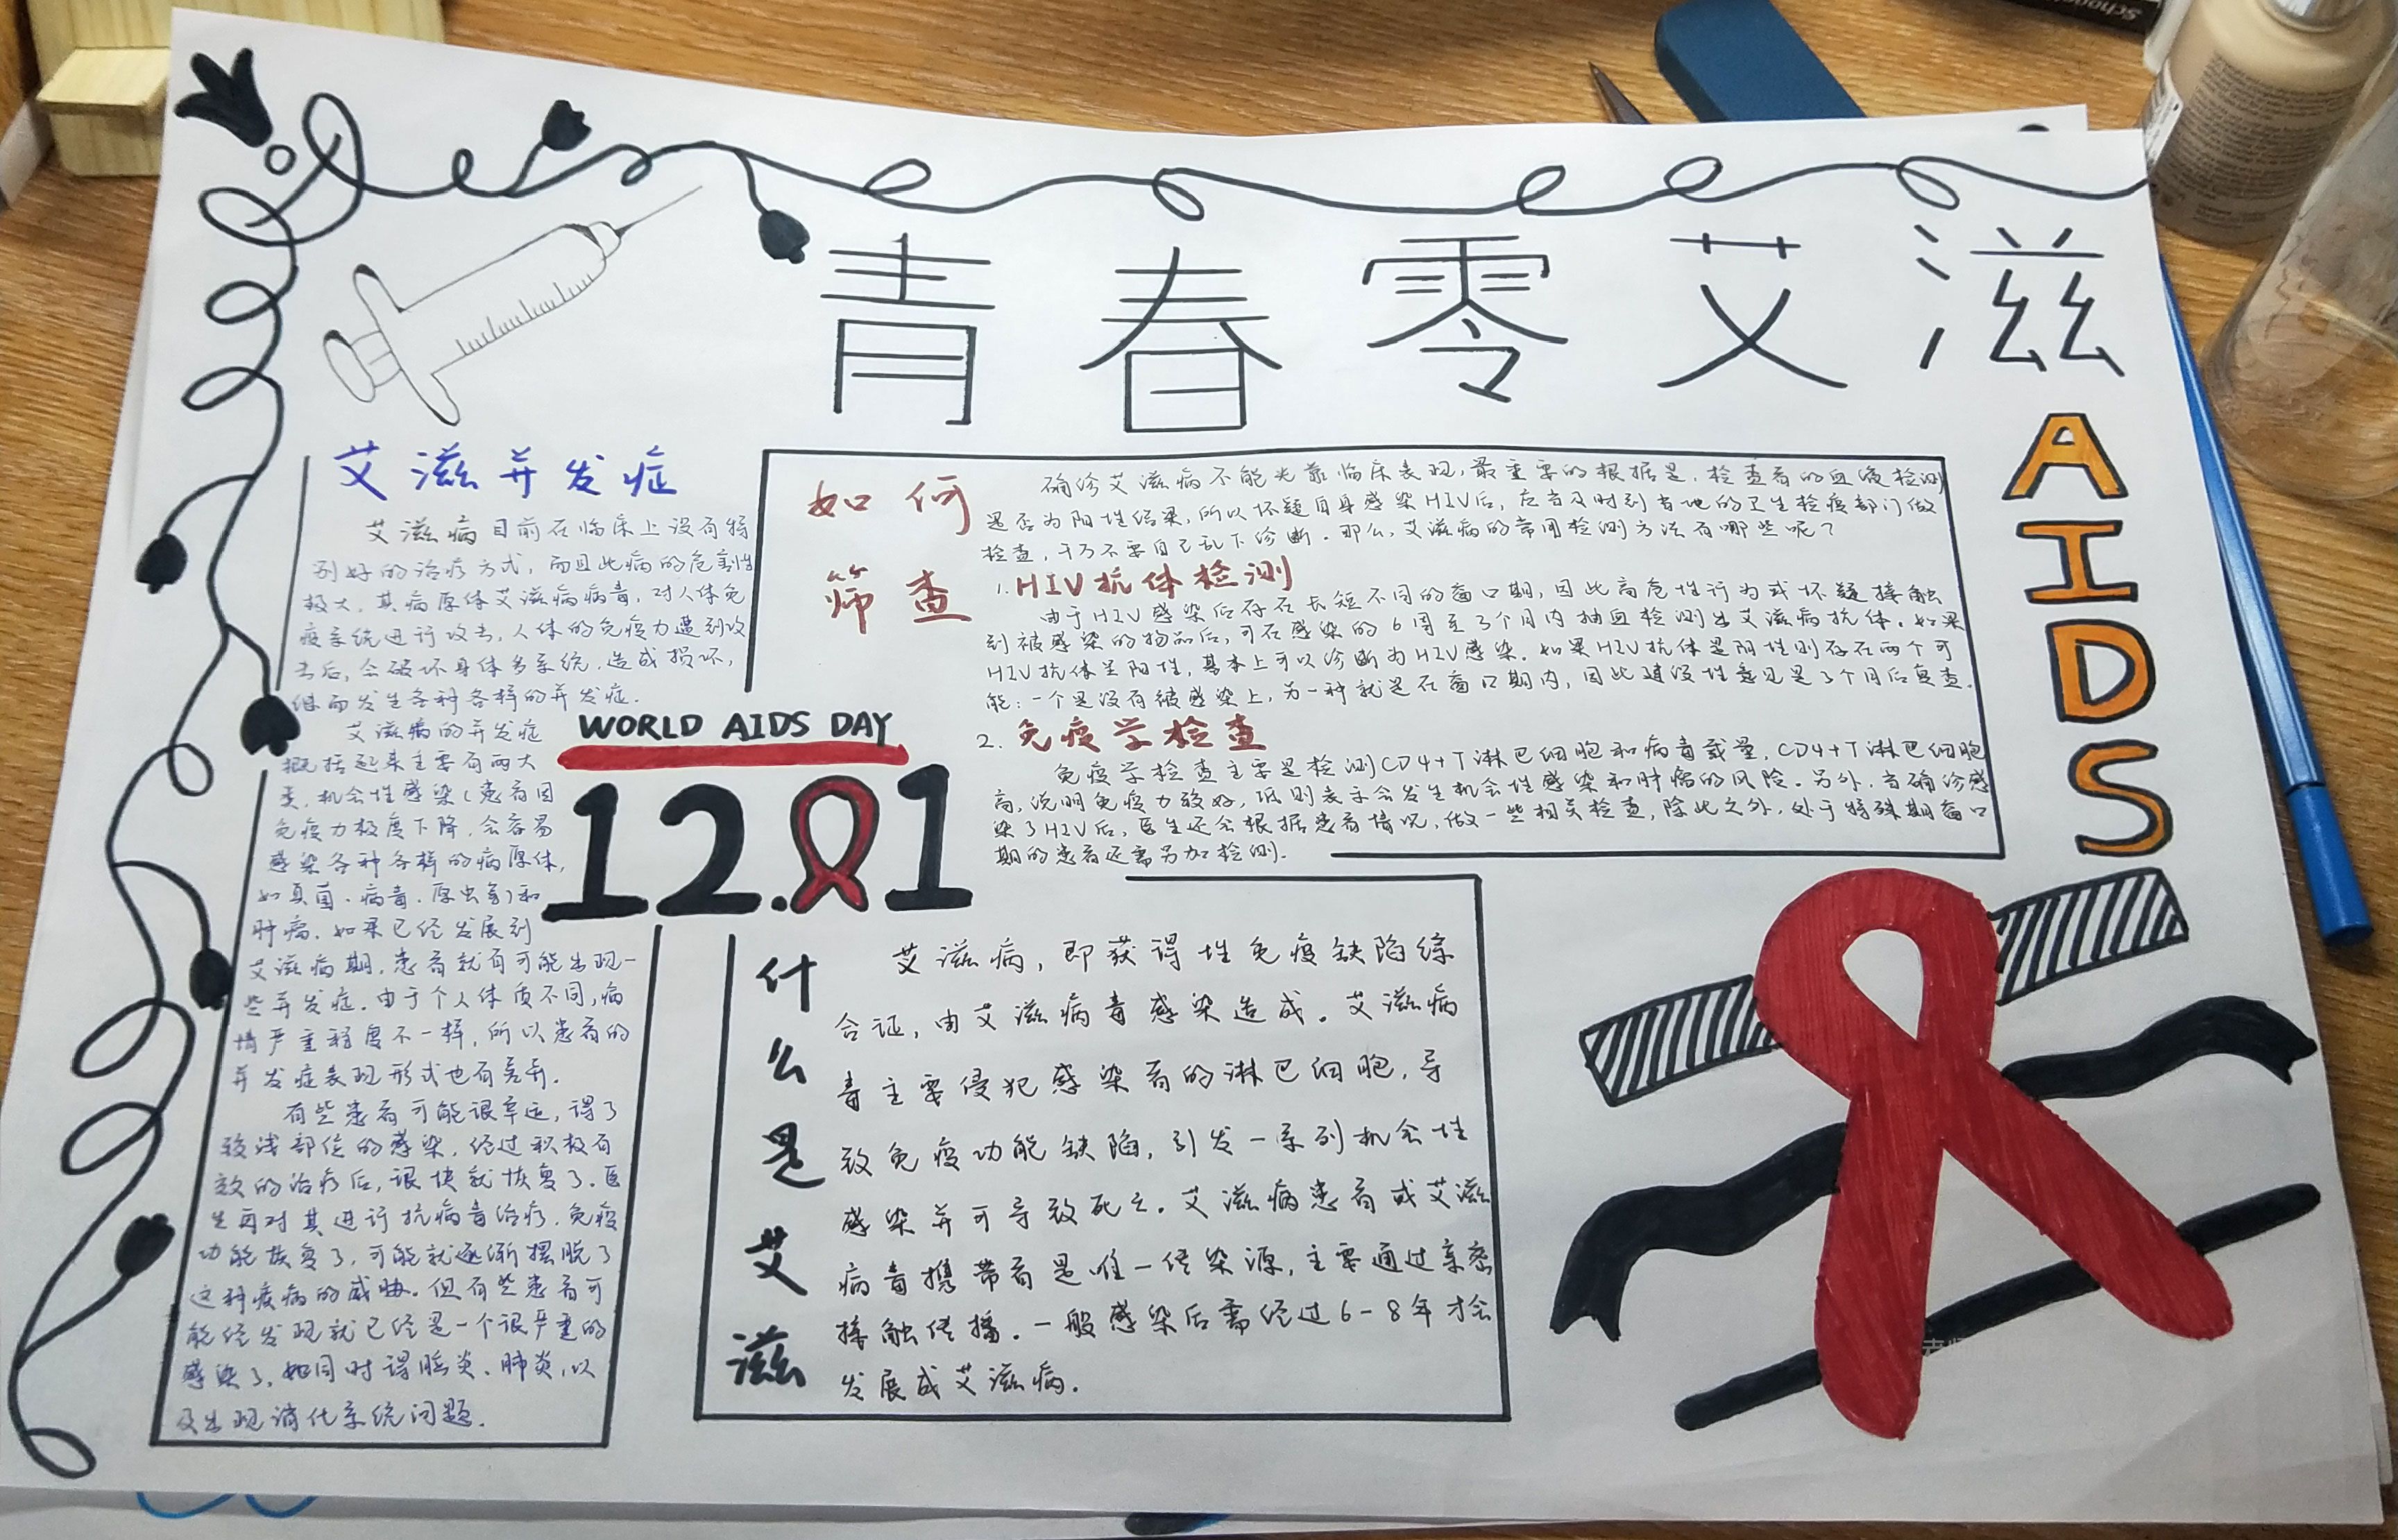 青春零艾滋
AIDS
艾滋并发症
艾滋病目前在临床上没有特
别好的治疗方式，而且此病的危害性
极大，其病原体艾滋病病毒，对人体免
疫系统进行攻击，人体的免疫力遭到攻
击后，会破坏身体多系统，造成损坏，
继而发生各种各样的并发症．
艾滋病的并发症
概括起来主要有两大
类，机会性感染（患者因
免疫力极度下降，会容易
感染各种各样的病原体，
如真菌、病毒、原虫等）和
肿瘤．如果已经发展到
艾滋病期，患者就有可能出现一
些并发症．由于个人体质不同，病
情严重程度不一样，所以患者的
并发症表现形式也有差异．
有些患者可能很幸运，得了
较浅部位的感染，经过积极有
效的治疗后，很快就恢复了．医
生再对其进行抗病毒治疗，免疫
功能恢复了，可能就逐渐摆脱了
这种疾病的威胁．但有些患者可
能经发现就已经是一个很严重的
感染了，如同时得脑炎、肺炎，以
及出现消化系统问题．
WORLD AIDS DAY
12.01
如何
筛查
确诊艾滋病不能光靠临床表现，最重要的根据是，检查者的血液检测
是否为阳性结果，所以怀疑自身感染HIV后，应当及时到当地的卫生检疫部门做
检查，千万不要自己乱下诊断．那么，艾滋病的常用检测方法有哪些呢？
1.HIV抗体检测
由于HIV感染后存在长短不同的窗口期，因此高危性行为或怀疑接触
到被感染的物品后，可在感染的6周至3个月内抽血检测出艾滋病抗体．如果
HIV抗体呈阳性，基本上可以诊断为HIV感染．如果HIV抗体是阴性则存在两个可
能：一个是没有被感染上，另一种就是在窗口期内，因此建设性意见是3个月后复查．
2.免疫学检查
免疫学检查主要是检测CD4+T淋巴细胞和病毒载量，CD4+T淋巴细胞
高，说明免疫力较好，低则表示会发生机会性感染和肿瘤的风险．另外，当确诊感
染了HIV后，医生还会根据患者情况，做一些相关检查，除此之外，处于特殊期窗口
期的患者还需另加检测．
什么是艾滋
艾滋病，即获得性免疫缺陷综
合证，由艾滋病毒感染造成．艾滋病
毒主要侵犯感染者的淋巴细胞，导
致免疫功能缺陷，引发一系列机会性
感染并可导致死亡．艾滋病患者或艾滋
病毒携带者是唯一传染源，主要通过亲密
接触传播．一般感染后需经过6-8年才会
发展成艾滋病．